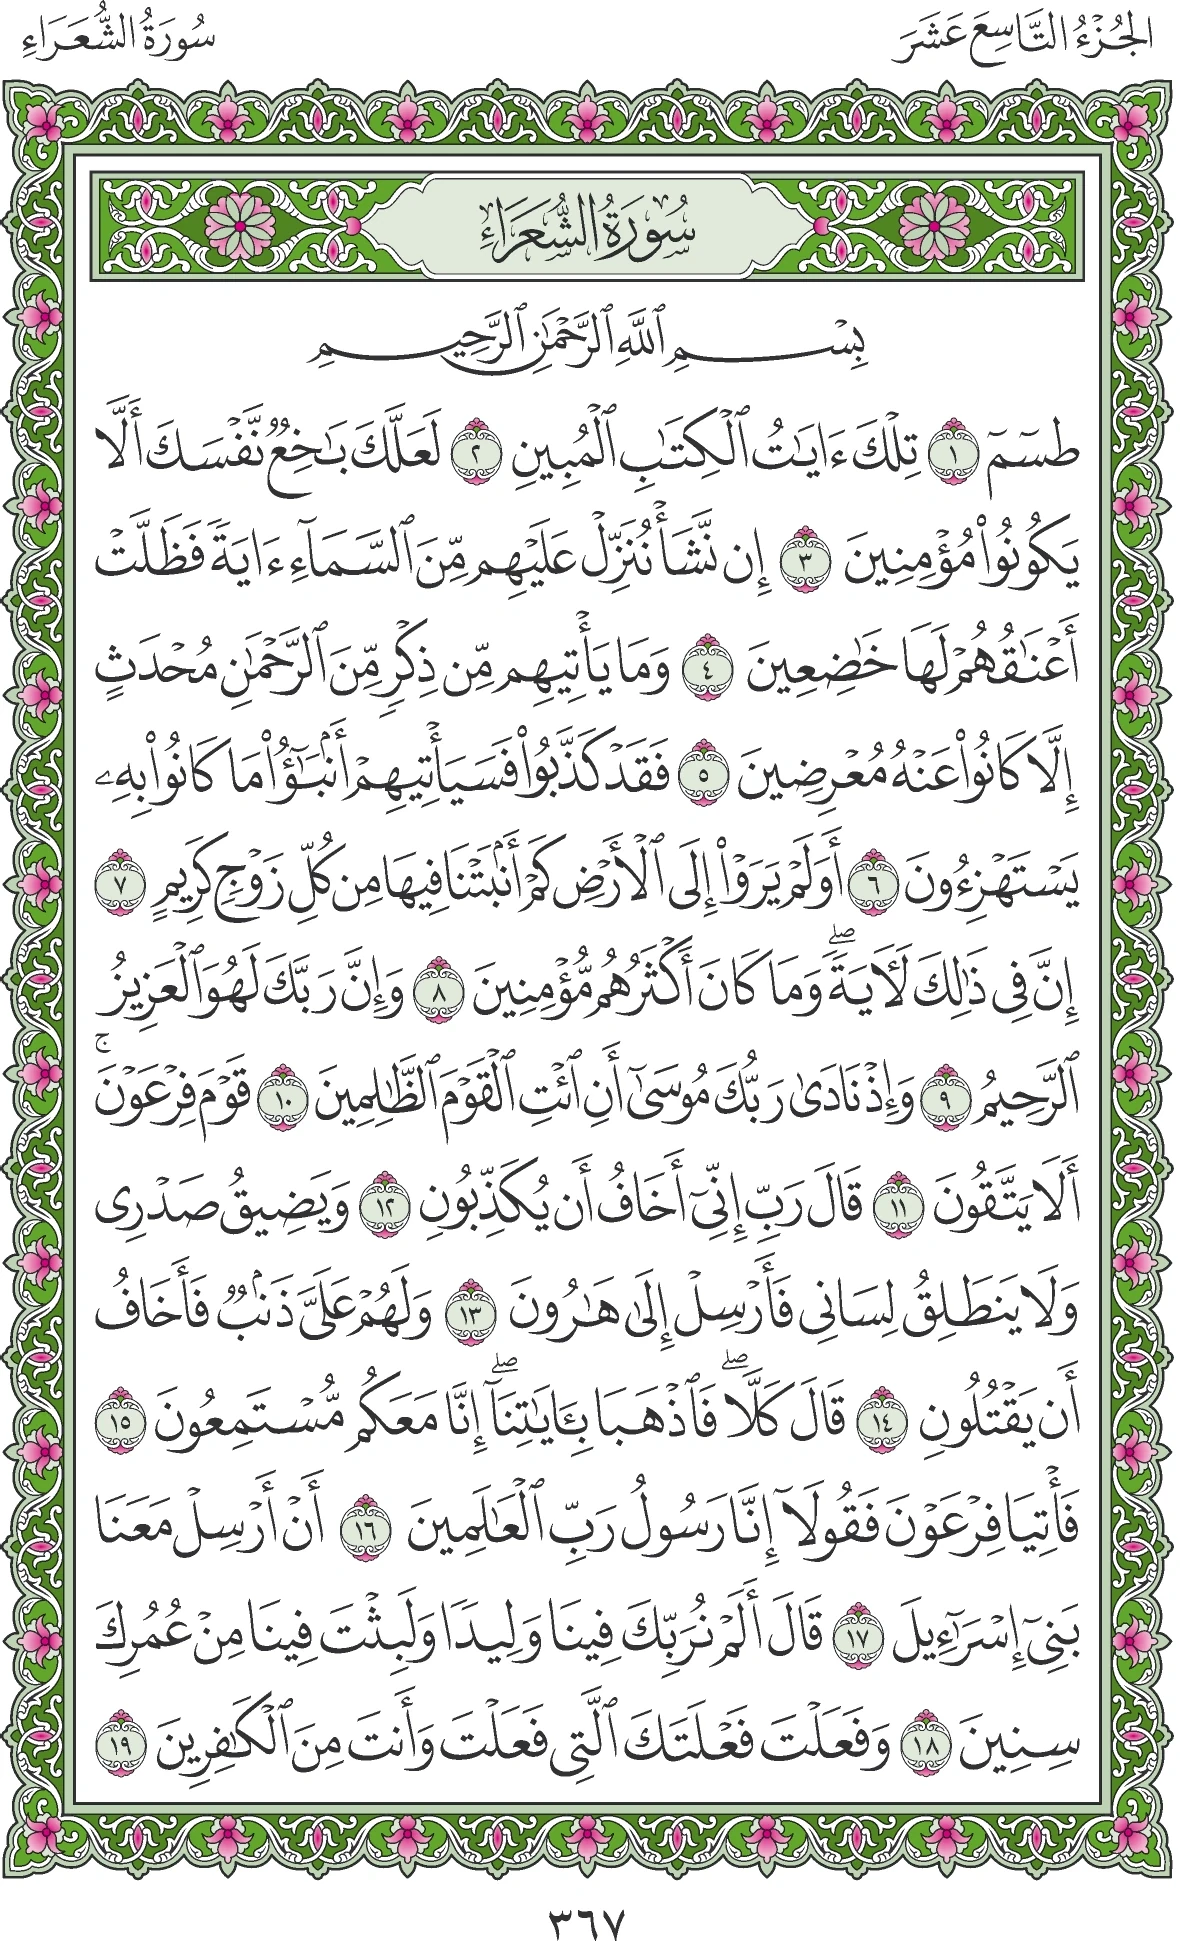 الجُزْءُ التَّاسِعَ عَشَرَ
سُورَةُ الشُّعَرَاءِ
سُورَةُ الشُّعَرَاءِ
بِسْمِ ٱللَّهِ ٱلرَّحْمَٰنِ ٱلرَّحِيمِ
طسٓمٓ ١ تِلْكَ ءَايَٰتُ ٱلْكِتَٰبِ ٱلْمُبِينِ ٢ لَعَلَّكَ بَٰخِعٌ نَّفْسَكَ أَلَّا
يَكُونُوا۟ مُؤْمِنِينَ ٣ إِن نَّشَأْ نُنَزِّلْ عَلَيْهِم مِّنَ ٱلسَّمَآءِ ءَايَةً فَظَلَّتْ
أَعْنَٰقُهُمْ لَهَا خَٰضِعِينَ ٤ وَمَا يَأْتِيهِم مِّن ذِكْرٍ مِّنَ ٱلرَّحْمَٰنِ مُحْدَثٍ
إِلَّا كَانُوا۟ عَنْهُ مُعْرِضِينَ ٥ فَقَدْ كَذَّبُوا۟ فَسَيَأْتِيهِمْ أَنۢبَٰٓؤُا۟ مَا كَانُوا۟ بِهِۦ
يَسْتَهْزِءُونَ ٦ أَوَلَمْ يَرَوْا۟ إِلَى ٱلْأَرْضِ كَمْ أَنۢبَتْنَا فِيهَا مِن كُلِّ زَوْجٍ كَرِيمٍ ٧
إِنَّ فِى ذَٰلِكَ لَءَايَةً ۖ وَمَا كَانَ أَكْثَرُهُم مُّؤْمِنِينَ ٨ وَإِنَّ رَبَّكَ لَهُوَ ٱلْعَزِيزُ
ٱلرَّحِيمُ ٩ وَإِذْ نَادَىٰ رَبُّكَ مُوسَىٰٓ أَنِ ٱئْتِ ٱلْقَوْمَ ٱلظَّٰلِمِينَ ١٠ قَوْمَ فِرْعَوْنَ ۚ
أَلَا يَتَّقُونَ ١١ قَالَ رَبِّ إِنِّىٓ أَخَافُ أَن يُكَذِّبُونِ ١٢ وَيَضِيقُ صَدْرِى
وَلَا يَنطَلِقُ لِسَانِى فَأَرْسِلْ إِلَىٰ هَٰرُونَ ١٣ وَلَهُمْ عَلَىَّ ذَنۢبٌ فَأَخَافُ
أَن يَقْتُلُونِ ١٤ قَالَ كَلَّا ۖ فَٱذْهَبَا بِـَٔايَٰتِنَآ ۖ إِنَّا مَعَكُم مُّسْتَمِعُونَ ١٥
فَأْتِيَا فِرْعَوْنَ فَقُولَآ إِنَّا رَسُولُ رَبِّ ٱلْعَٰلَمِينَ ١٦ أَنْ أَرْسِلْ مَعَنَا
بَنِىٓ إِسْرَٰٓءِيلَ ١٧ قَالَ أَلَمْ نُرَبِّكَ فِينَا وَلِيدًا وَلَبِثْتَ فِينَا مِنْ عُمُرِكَ
سِنِينَ ١٨ وَفَعَلْتَ فَعْلَتَكَ ٱلَّتِى فَعَلْتَ وَأَنتَ مِنَ ٱلْكَٰفِرِينَ ١٩
٣٦٧